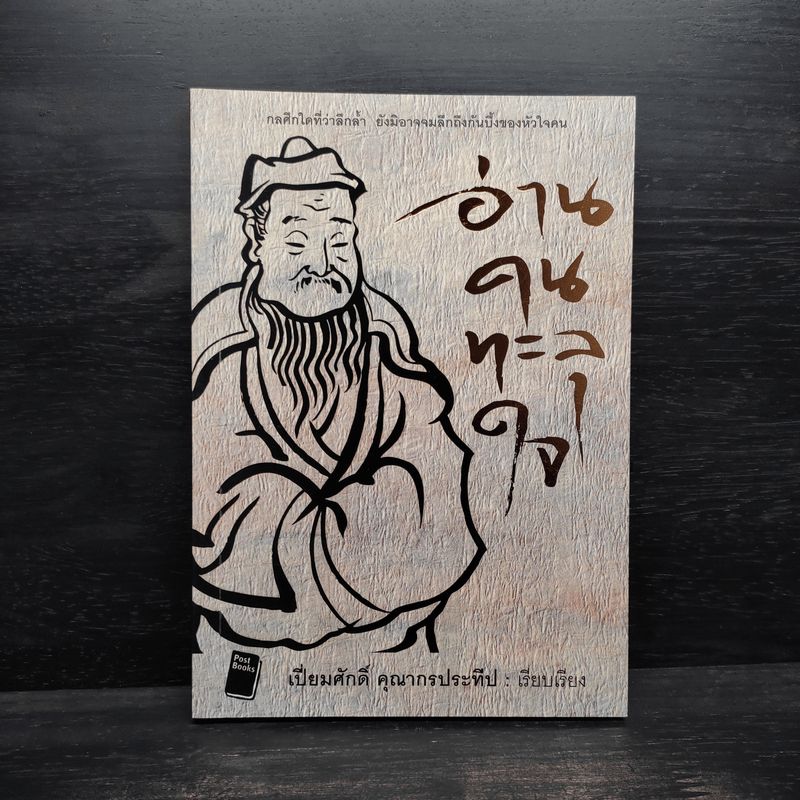 กลศึกใดที่ว่าลึกล้ำ ยังมิอาจจมลึกถึงก้นบึ้งของหัวใจคน
อ่าน
คน
ทะลุ
ใจ
Post
Books
เปี่ยมศักดิ์ คุณากรประทีป : เรียบเรียง